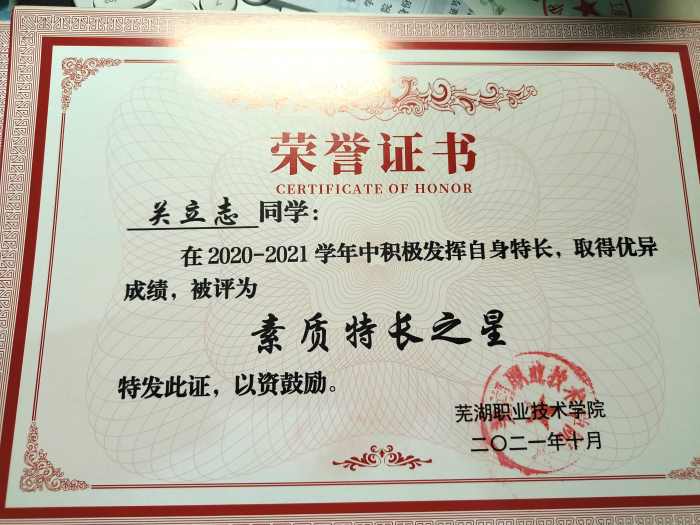 荣誉证书
CERTIFICATE OF HONOR
关立志 同学：
在2020-2021学年中积极发挥自身特长，取得优异
成绩，被评为
素质特长之星
特发此证，以资鼓励。
芜湖职业技术学院
二〇二一年十月